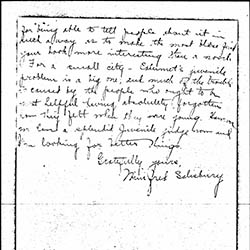 for being able to tell people about it in
such a way as to make the most
your book more interesting than a novel.
For a small city - Calumet's juvenile
problem is a big one, but much of the trouble
is caused by the people who ought to be
most helpful having absolutely forgotten
how they felt when they were young.
have a splendid juvenile judge now and
I'm looking for better things.
Gratefully yours,
Winifred Salisbury